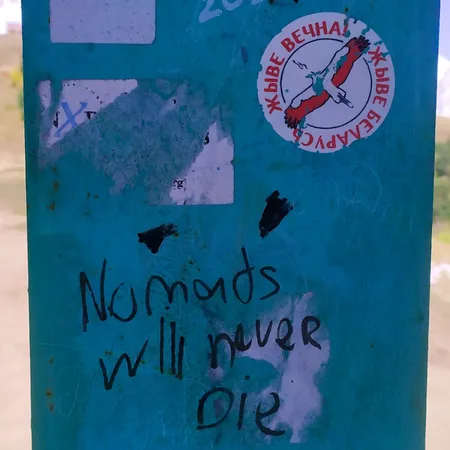 202
ЖЫВЕ ВЕЧНА!
ЖЫВЕ БЕЛАРУСЬ
X
Nomads
will never
Die